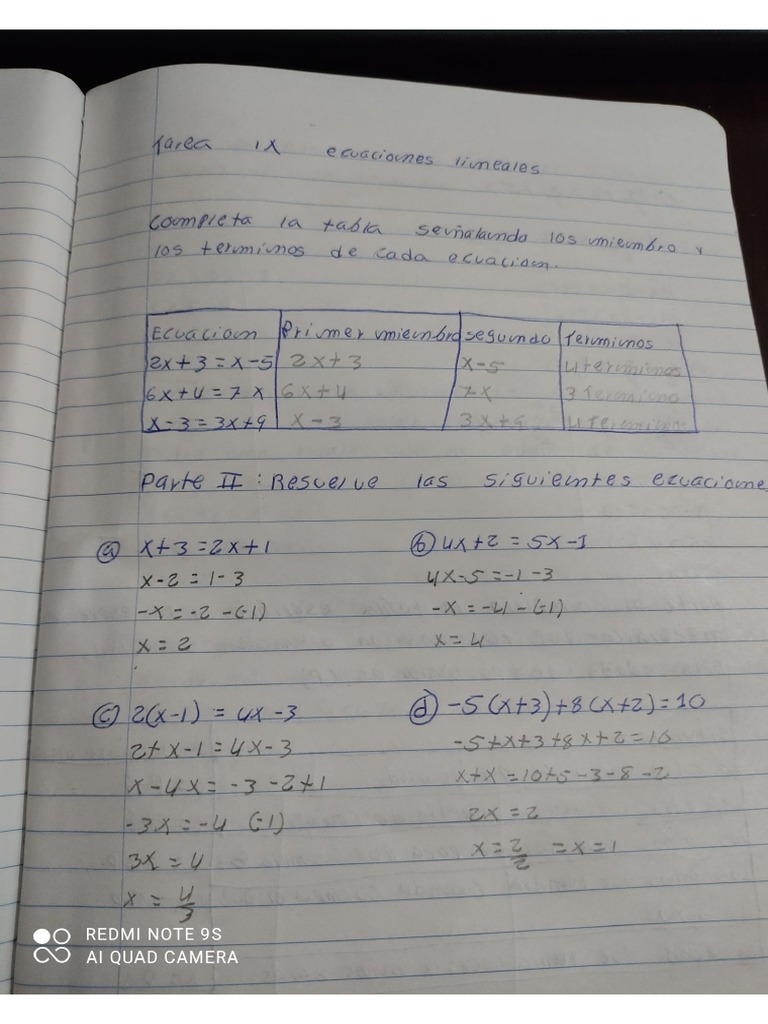 tarea IX ecuaciones lineales
Completa la tabla señalando los miembro y
los terminos de cada ecuacion.
Ecuacion Primer miembro segundo terminos
2x+3=x-5 2x+3 x-5 4 terminos
6x+4=7x 6x+4 7x 3 termino
x-3=3x+9 x-3 3x+9 4 terminos
Parte II: Resuelve las siguientes ecuaciones
a) x+3=2x+1 b) 4x+2=5x-1
x-2=1-3 4x-5=-1-3
-x=-2-(-1) -x=-4-(-1)
x=2 x=4
c) 2(x-1)=4x-3 d) -5(x+3)+8(x+2)=10
2+x-1=4x-3 -5+x+3+8x+2=10
x-4x=-3-2+1 x+x=10+5-3-8-2
-3x=-4 (-1) 2x=2
3x=4 x=2/2 =x=1
x=4/3
REDMI NOTE 9S
AI QUAD CAMERA